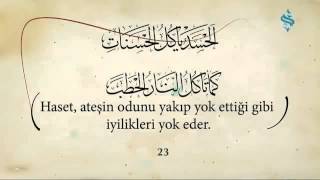 الْحَسَدُ يَأْكُلُ الْحَسَنَاتِ
كَمَا تَأْكُلُ النَّارُ الْحَطَبَ
Haset, ateşin odunu yakıp yok ettiği gibi
iyilikleri yok eder.
23